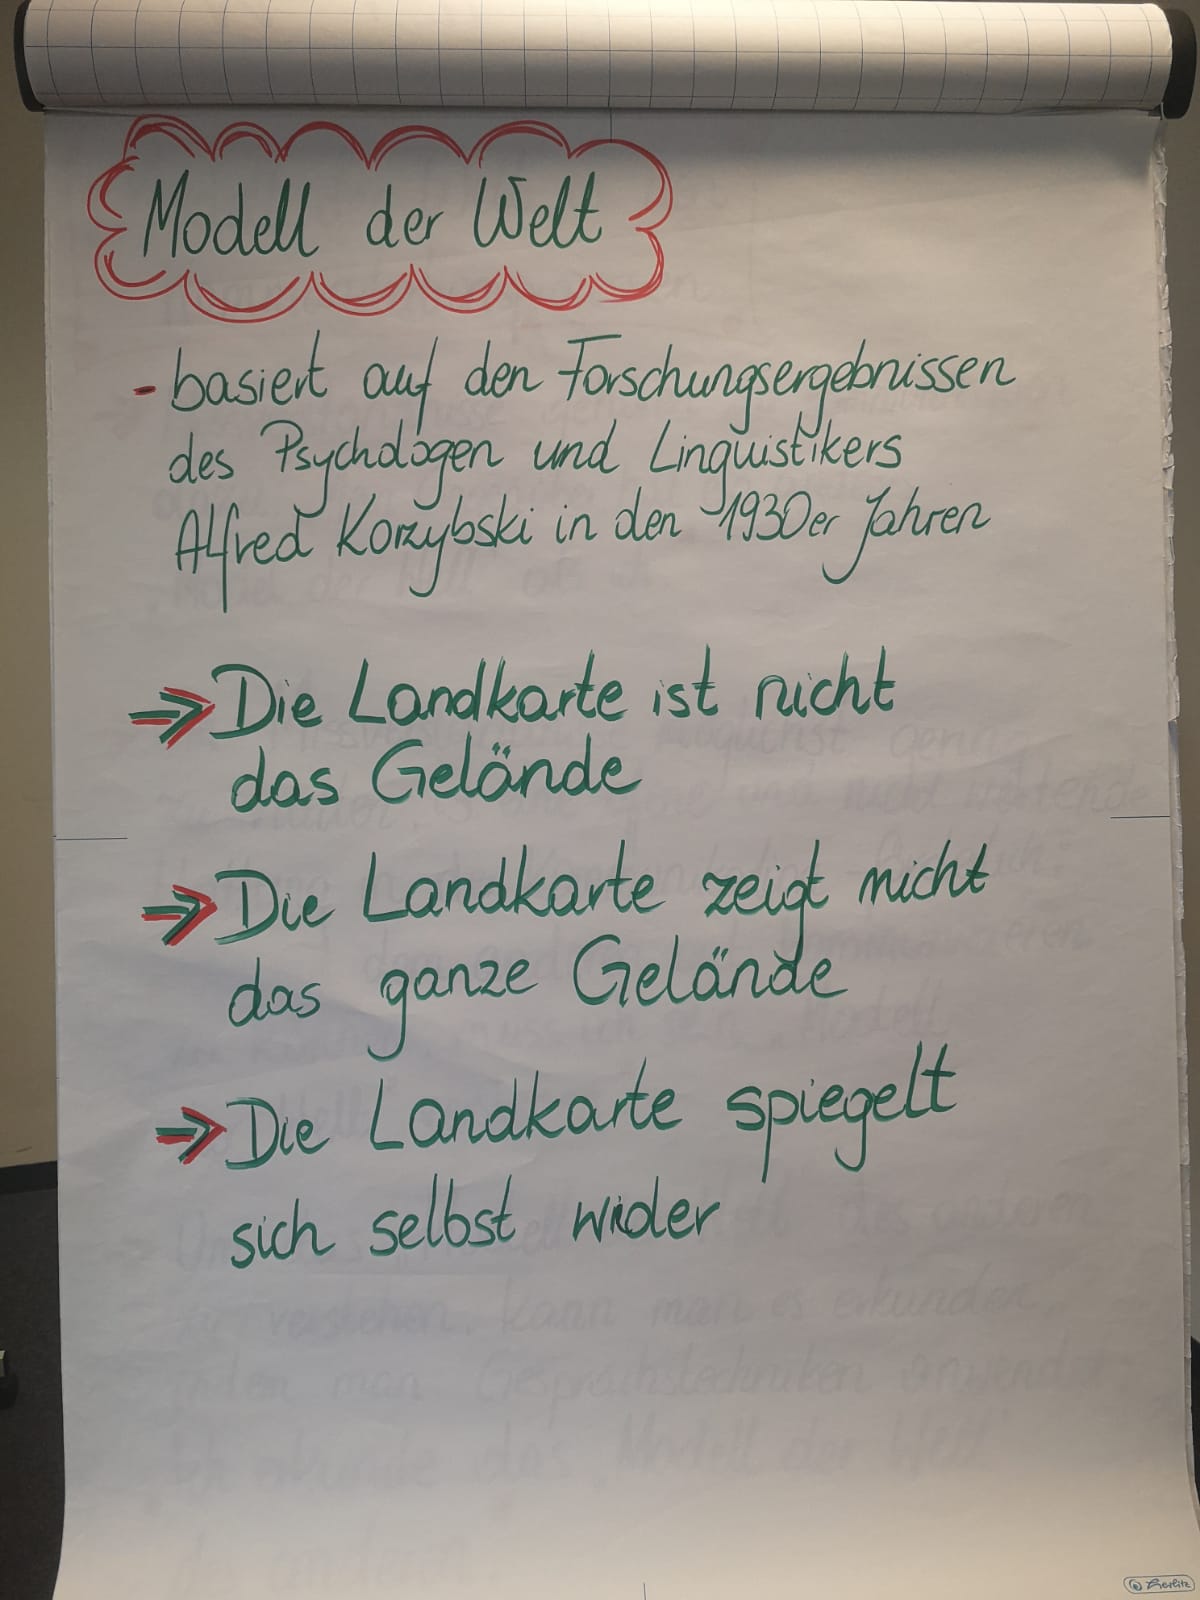 Modell der Welt
- basiert auf den Forschungsergebnissen
des Psychologen und Linguistikers
Alfred Korzybski in den 1930er Jahren
⇒ Die Landkarte ist nicht
das Gelände
⇒ Die Landkarte zeigt nicht
das ganze Gelände
⇒ Die Landkarte spiegelt
sich selbst wider
Berlitz